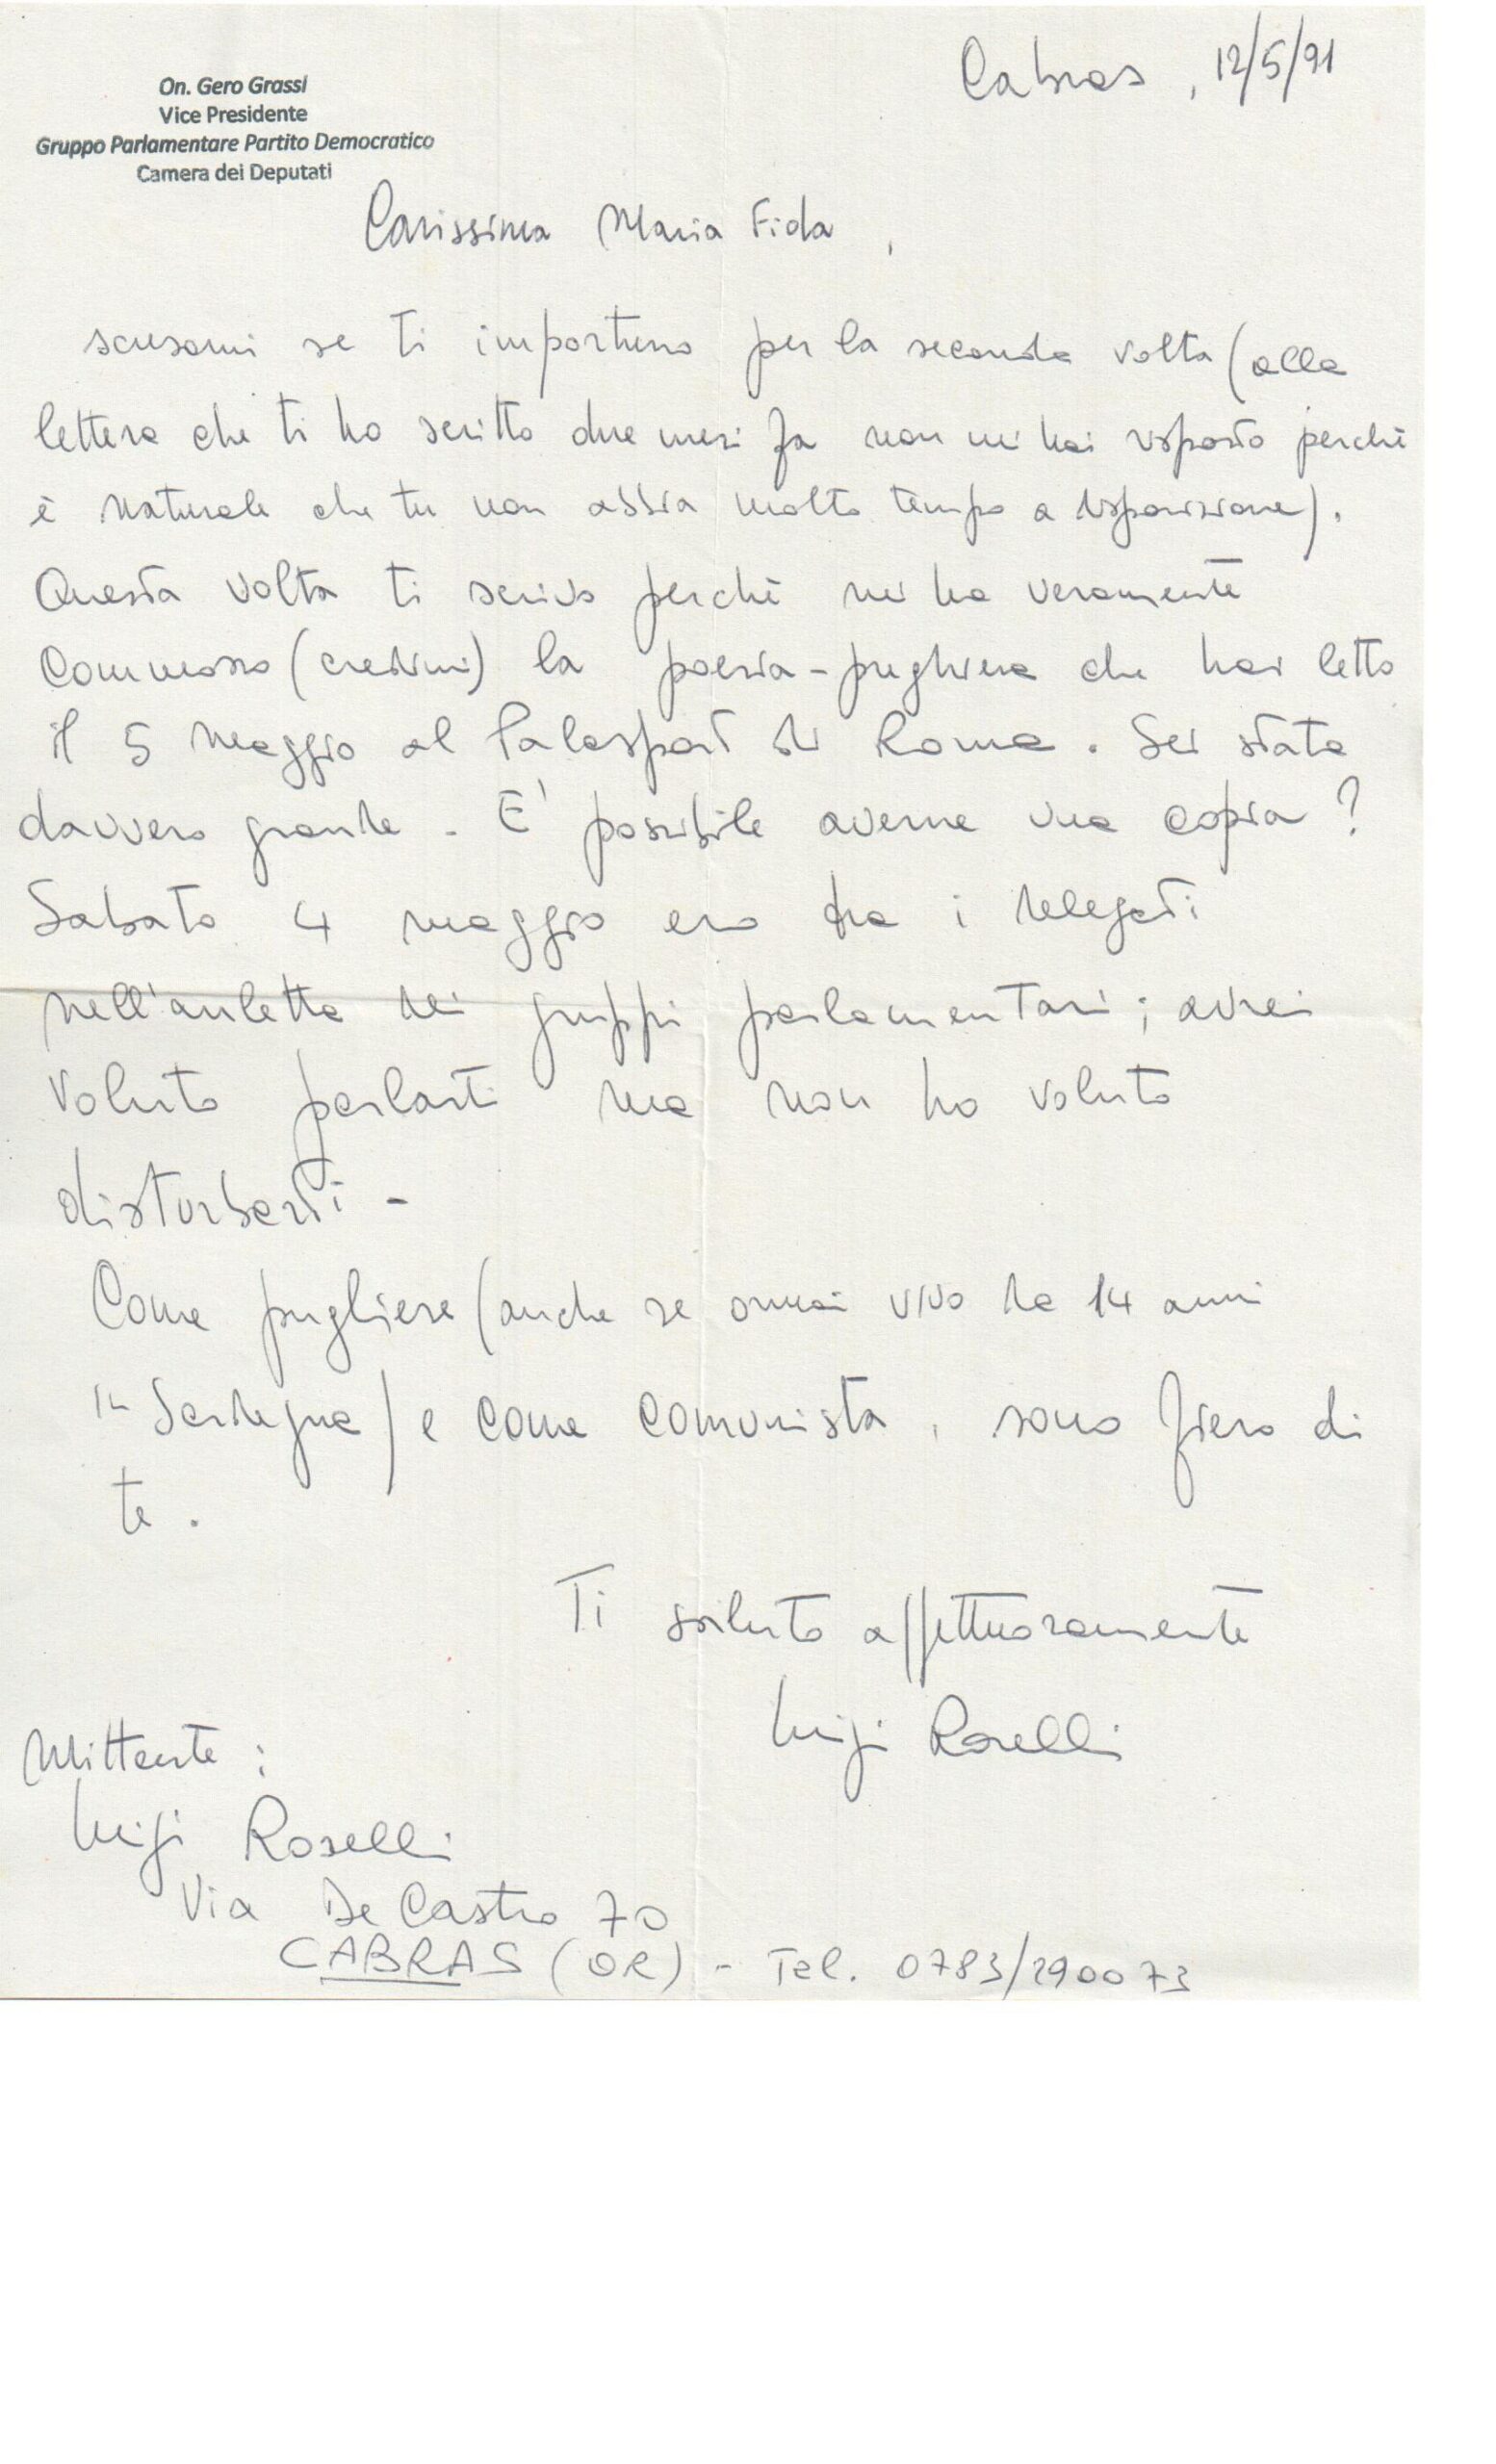 Cabras, 12/5/91
On. Gero Grassi
Vice Presidente
Gruppo Parlamentare Partito Democratico
Camera dei Deputati
Carissima Maria Fida,
scusami se ti importuno per la seconda volta (alla
lettera che ti ho scritto due mesi fa non mi hai risposto perchè
è naturale che tu non abbia molto tempo a disposizione).
Questa volta ti scrivo perchè mi ha veramente
commosso (credimi) la poesia-preghiera che hai letto
il 5 maggio al Palasport di Roma. Sei stata
davvero grande. E' possibile averne una copia?
Sabato 4 maggio ero tra i delegati
nell'auletta dei gruppi parlamentari; avrei
voluto parlarti ma non ho voluto
disturbarti -
Come pugliese (anche se ormai vivo da 14 anni
in Sardegna) e come comunista, sono fiero di
te.
Ti saluto affettuosamente
Luigi Roselli
Mittente:
Luigi Roselli
Via De Castro 70
CABRAS (OR) - Tel. 0783/290073